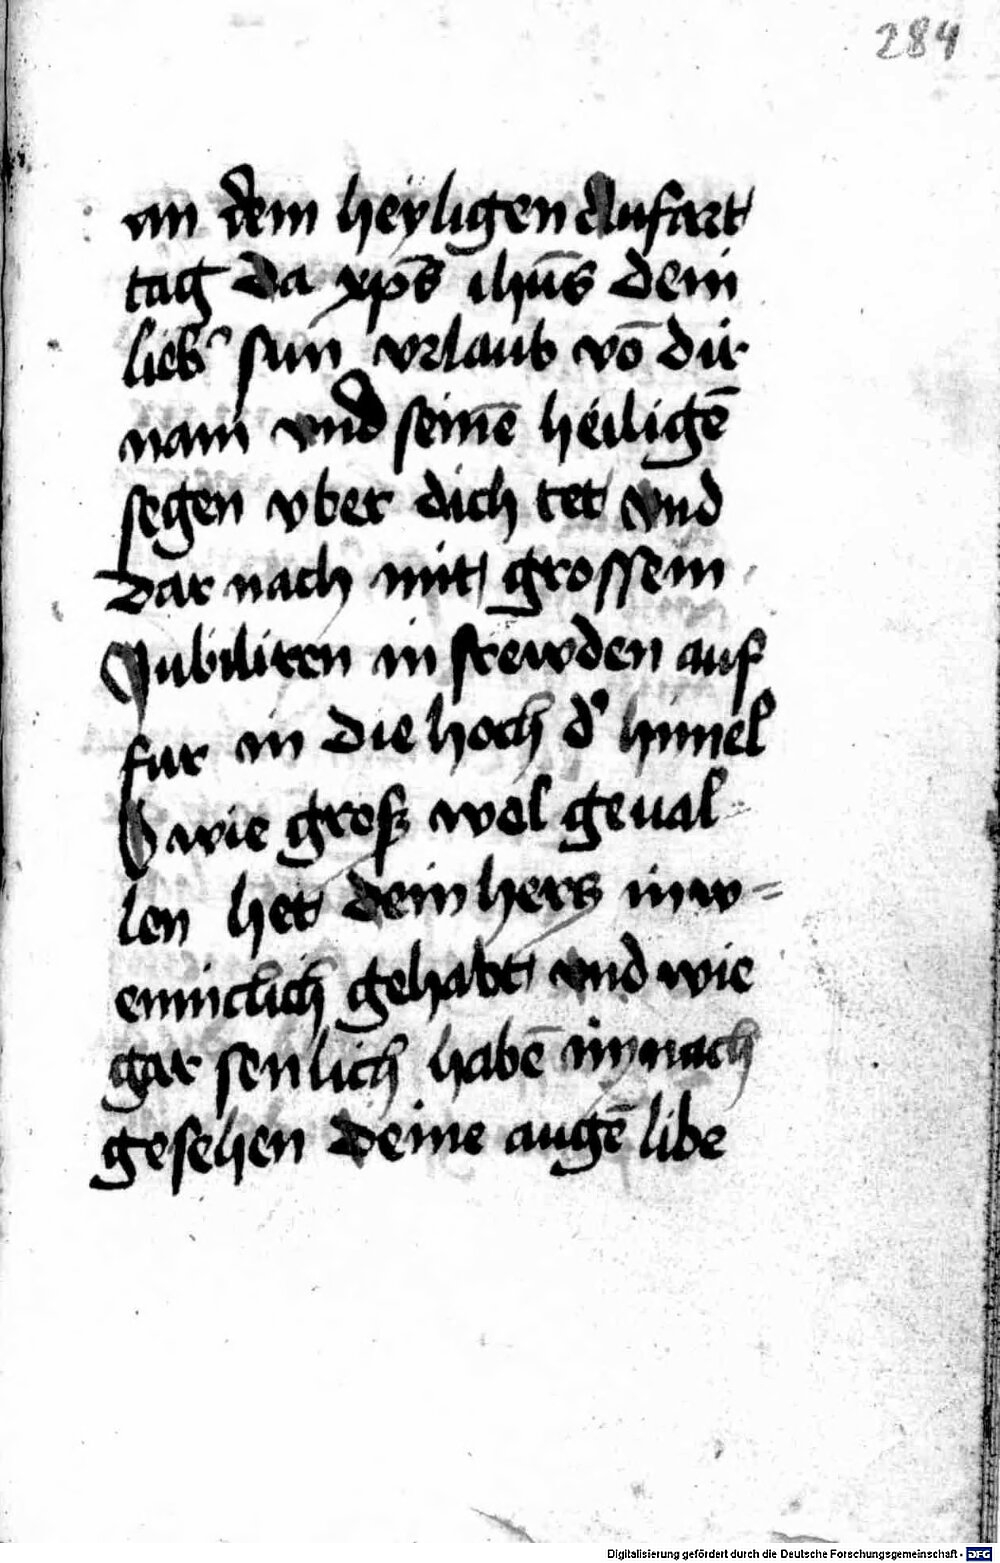 284
an dem heyligen Aufart
tag da xp̄s ihūs dein
lieb᾽ sun vrlaub vō dir
nam vnd seinē heiligē
segen vber dich tet vnd
Dar nach mit grossem
Jubiliren in frewden auf
fur in die hoch d᾽ himel
O wie groß wol geual
len het dein hercz inw=
enniclich gehabt vnd wie
gar senlich habē im nach
gesehen deine augē libe
Digitalisierung gefördert durch die Deutsche Forschungsgemeinschaft - DFG